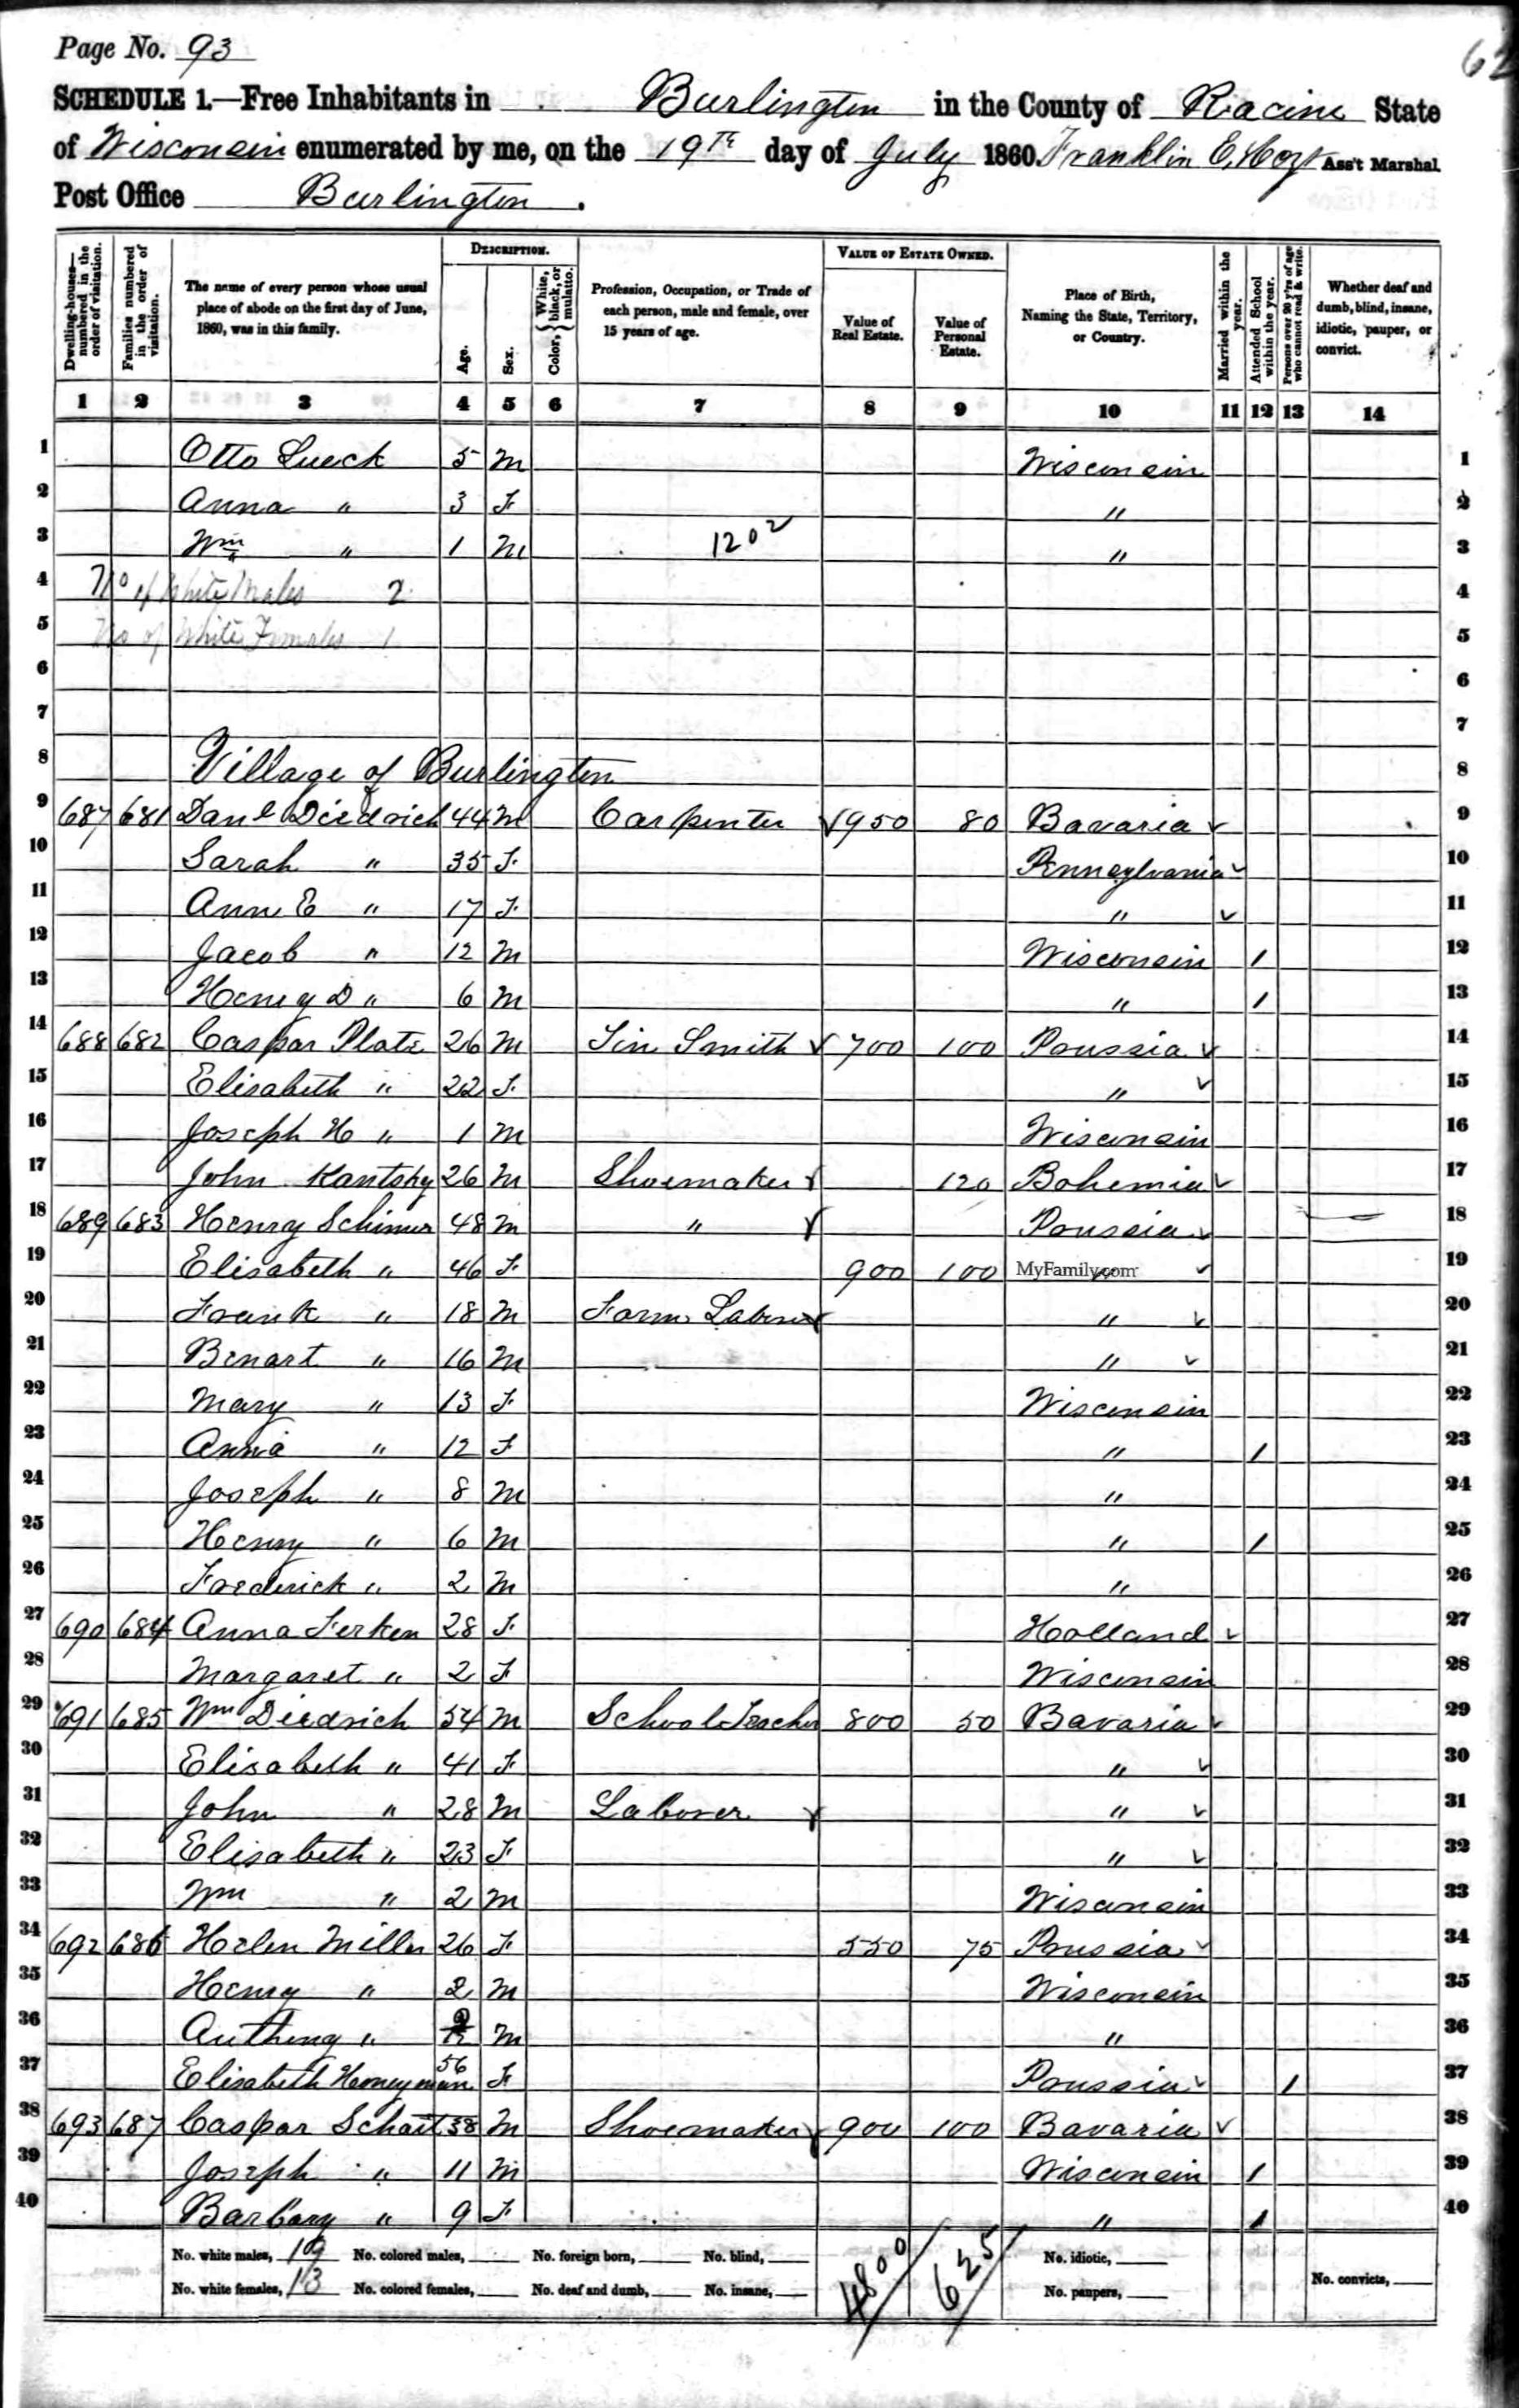 Page No. 93
62
SCHEDULE 1.—Free Inhabitants in Burlington in the County of Racine State
of Wisconsin enumerated by me, on the 19th day of July 1860. Franklin E. Ass't Marshal.
Post Office Burlington.
Dwelling-houses—numbered in the order of visitation.
Families numbered in the order of visitation.
The name of every person whose usual place of abode on the first day of June, 1860, was in this family.
DESCRIPTION.
Age.
Sex.
Color, { White, black, or mulatto.
Profession, Occupation, or Trade of each person, male and female, over 15 years of age.
VALUE OF ESTATE OWNED.
Value of Real Estate.
Value of Personal Estate.
Place of Birth, Naming the State, Territory, or Country.
Married within the year.
Attended School within the year.
Persons over 20 y'rs of age who cannot read & write.
Whether deaf and dumb, blind, insane, idiotic, pauper, or convict.
1 2 3 4 5 6 7 8 9 10 11 12 13 14
1 Otto Lueck 5 M Wisconsin 1
2 Anna " 3 F " 2
3 Wm " 1 M 1202 " 3
4 No of White Males 2 4
5 No of White Females 1 5
6 6
7 7
8 Village of Burlington 8
9 687 681 Danl Diedrich 44 M Carpenter 950 80 Bavaria 9
10 Sarah " 35 F Pennsylvania 10
11 Ann E " 17 F " 11
12 Jacob " 12 M Wisconsin / 12
13 Henry D " 6 M " / 13
14 688 682 Caspar Plate 26 M Tin Smith 700 100 Prussia 14
15 Elisabeth " 22 F " 15
16 Joseph H " 1 M Wisconsin 16
17 John Kantsky 26 M Shoemaker 120 Bohemia 17
18 689 683 Henry 48 M " Prussia 18
19 Elisabeth " 46 F 900 100 MyFamily.com " 19
20 Frank " 18 M Farm Laborer " 20
21 Benart " 16 M " 21
22 Mary " 13 F Wisconsin 22
23 Anna " 12 F " / 23
24 Joseph " 8 M " 24
25 Henry " 6 M " / 25
26 Frederick " 2 M " 26
27 690 684 Anna Ferken 28 F Holland 27
28 Margaret " 2 F Wisconsin 28
29 691 685 Wm Diedrich 54 M School Teacher 800 50 Bavaria 29
30 Elisabeth " 41 F " 30
31 John " 28 M Laborer " 31
32 Elisabeth " 23 F " 32
33 Wm " 2 M Wisconsin 33
34 692 686 Helen Miller 26 F 550 75 Prussia 34
35 Henry " 2 M Wisconsin 35
36 Anthony " M " 36
37 Elisabeth Honeyman 56 F Prussia / 37
38 693 687 Caspar 38 M Shoemaker 900 100 Bavaria 38
39 Joseph " 11 M Wisconsin / 39
40 Barbary " 9 F " / 40
No. white males, 19 No. colored males, No. foreign born, No. blind, 4800 625 No. idiotic,
No. white females, 13 No. colored females, No. deaf and dumb, No. insane, No. paupers, No. convicts,